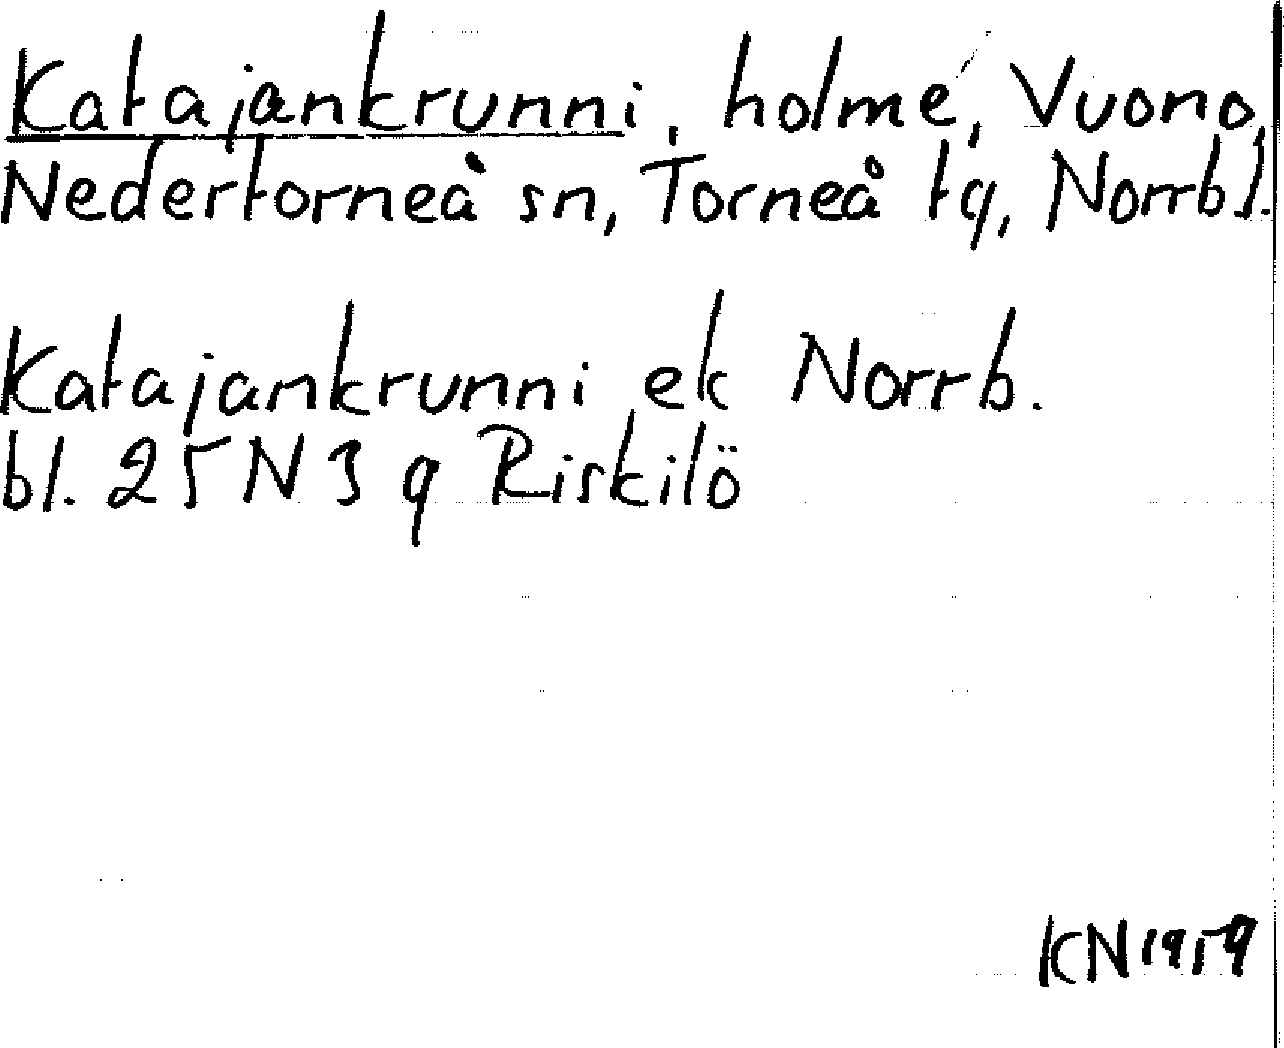 Katajankrunni, holme, Vuono,
Nedertorneå sn, Torneå tg, Norrb l.
Katajankrunni ek Norrb.
bl. 25 N 3 g Riskilö
KN 1959